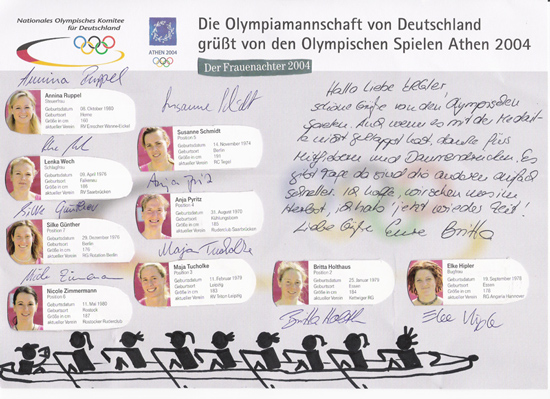 Nationales Olympisches Komitee
für Deutschland
ATHEN 2004
Die Olympiamannschaft von Deutschland
grüßt von den Olympischen Spielen Athen 2004
Der Frauenachter 2004
Annina Ruppel
Annina Ruppel
Steuerfrau
Geburtsdatum
Geburtsort
Größe in cm
aktueller Verein
Susanne Schmidt
Susanne Schmidt
Position 5
Geburtsdatum 14. November 1974
Geburtsort Berlin
Größe in cm 181
aktueller Verein RC Tegel
Lenka Wech
Schlagfrau
Geburtsdatum April 1976
Geburtsort
Größe in cm 186
aktueller Verein RV Saarbrücken
Anja Pyritz
Position 4
Geburtsdatum August 1970
Geburtsort
Größe in cm
aktueller Verein Ruderclub Saarbrücken
Silke Günther
Silke Günther
Position 7
Geburtsdatum 29. Dezember 1976
Geburtsort Berlin
Größe in cm 175
aktueller Verein RG Rotation Berlin
Maja Tucholke
Maja Tucholke
Position 3
Geburtsdatum Februar 1979
Geburtsort Leipzig
Größe in cm 183
aktueller Verein Leipzig
Nicole Zimmermann
Position 6
Geburtsdatum 11. Mai 1980
Geburtsort Rostock
Größe in cm 187
aktueller Verein Rostocker Ruderclub
Britta Holthaus
Position 2
Geburtsdatum 25. Januar 1978
Geburtsort Essen
Größe in cm 184
aktueller Verein RG
Elke Hipler
Bugfrau
Geburtsdatum September 1978
Geburtsort Essen
Größe in cm
aktueller Verein RG Angaria Hannover
Hallo Liebe
schöne Grüße von den Olympischen
Spielen. Auch wenn es mit der Medaille
nicht geklappt hat, danke fürs
Mitfiebern und Daumendrücken. Es
gibt Tage da sind die anderen einfach
schneller. Ich hoffe, wir sehen uns im
Herbst, ich hab' jetzt wieder Zeit!
Liebe Grüße Eure Britta